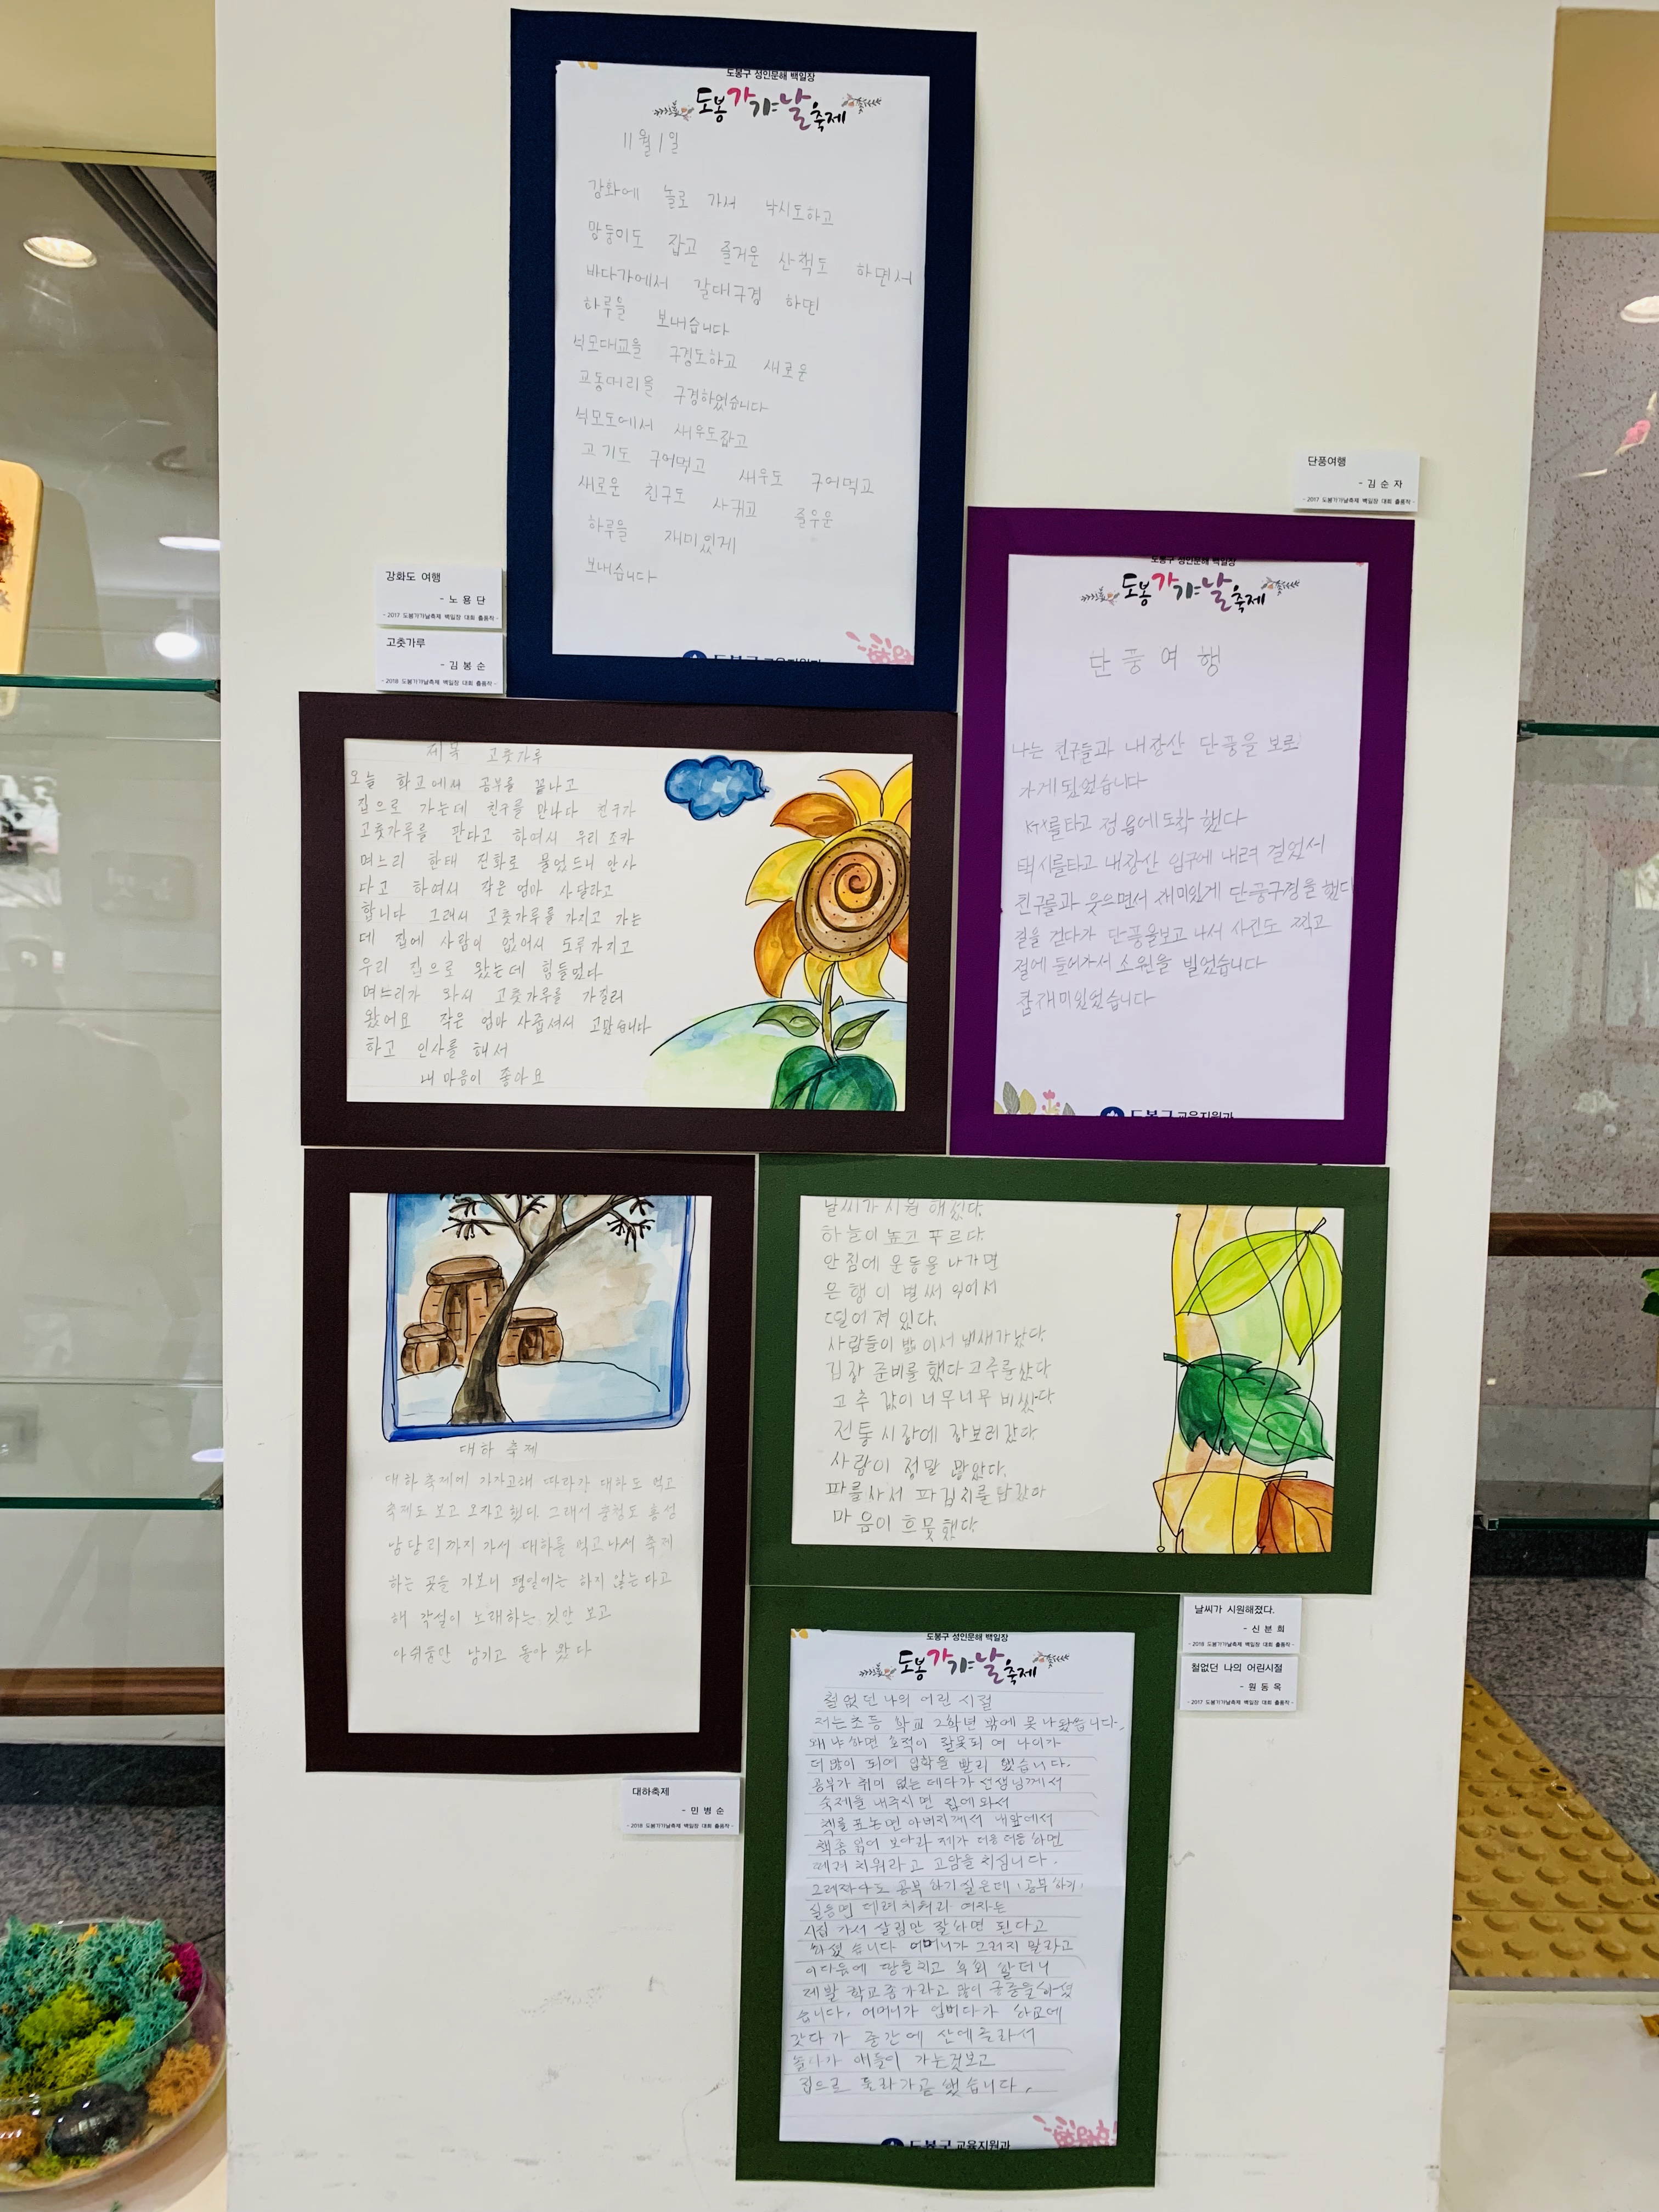 도봉구 성인문해 백일장
도봉 가갸날 축제
11월 1일
강화에 놀로 가서 낙시도하고
망둥이도 잡고 즐거운 산책도 하면서
바다가에서 갈대구경 하면
하루을 보내습니다
석모대교을 구경도하고 새로운
교동머리을 구경하였습니다
석모도에서 새우도잡고
고기도 구어먹고 새우도 구어먹고
새로운 친구도 사귀고 줄우운
하루을 재미있게
보내습니다
도봉구 교육지원과
강화도 여행
- 노 용 단
- 2017 도봉가갸날축제 백일장 대회 출품작 -
고춧가루
- 김 봉 순
- 2018 도봉가갸날축제 백일장 대회 출품작 -
제목 고춧가루
오늘 학교에서 공부를 끝나고
집으로 가는데 친구를 만나다 친구가
고춧가루를 판다고 하여서 우리 조카
며느리 한태 전화로 물었드니 안사
다고 하여서 작은 엄마 사달라고
합니다 그래서 고춧가루를 가지고 가는
데 집에 사람이 없어서 도루가지고
우리 집으로 왔는데 힘들었다
며느리가 와서 고춧가루를 가질러
왔어요 작은 엄마 사줍셔서 고맙습니다
하고 인사를 해서
내 마음이 좋아요
단풍여행
- 김 순 자
- 2017 도봉가갸날축제 백일장 대회 출품작 -
도봉구 성인문해 백일장
도봉 가갸날 축제
단 풍 여 행
나는 친구들과 내장산 단풍을 보로
가게 되었습니다
KTX를타고 정읍에도착 했다
택시를타고 내장산 입구에 내려 걸었서
친구들과 웃으면서 재미있게 단풍구경을 했다
길을 걷다가 단풍을보고 나서 사진도 찍고
절에 들어가서 소원을 빌었습니다
참재미있었습니다
도봉구 교육지원과
대하 축제
대하 축제에 가자고해 따라가 대하도 먹고
축제도 보고 오자고했다. 그래서 충청도 홍성
남당리까지 가서 대하를 먹고나서 축제
하는 곳을 가보니 평일에는 하지 않는다고
해 각설이 노래하는 것만 보고
아쉬움만 남기고 돌아 왔다
대하축제
- 민 병 순
- 2018 도봉가갸날축제 백일장 대회 출품작 -
날씨가 시원 해졌다.
하늘이 높고 푸르다.
안침에 운동을 나가면
은행이 벌써 익어서
떨어져 있다.
사람들이 밟이서 냄새가났다
김장 준비를 했다 고추를샀다
고추 값이 너무너무 비쌌다
전통시장에 장보러갔다
사람이 정말 많았다.
파를사서 파김치를담갔다
마음이 흐뭇했다
날씨가 시원해졌다.
- 신 분 희
- 2018 도봉가갸날축제 백일장 대회 출품작 -
철없던 나의 어린시절
- 원 동 옥
- 2017 도봉가갸날축제 백일장 대회 출품작 -
도봉구 성인문해 백일장
도봉 가갸날 축제
철없던 나의 어린 시절
저는초등 학교 2학년 밖에 못나왔습니다.
왜냐하면 호적이 잘못되 여 나이가
더많이 되여 입학을 빨리 했습니다.
공부가 취미 없는데다가 선생님께서
숙제를 내주시면 집에와서
책를 표논면 아버지께서 내앞에서
책좀 읽어 보아라 제가 더듬더듬하면
때려 치워라고 고암을 치십니다.
그레짜나도 공부하기 실은데 공부하기
실응면 데려치워라 여자는
시집 가서 살림만 잘하면 된다고
하셨 습니다 어머니가 그러지 말라고
이다음에 땅을치고 후회 할더니
제발 학교좀가라고 많이 하셨
습니다. 어머니가 업버다가 하교에
갓다가 중간에 산에올라서
놀다가 애들이 가는것보고
집으로 돌라가곤 했습니다.
도봉구 교육지원과